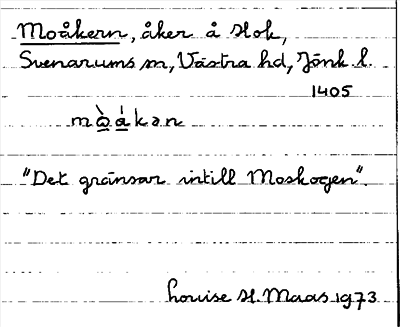 Moåkern, åker å Hok,
Svenarums sn, Västra hd, Jönk l.
1405
mo̱̊̀á̱kən
"Det gränsar intill Moskogen".
Louise H. Maas 1973